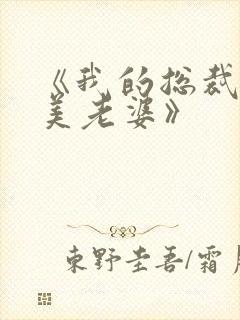 《我的总裁
美老婆》
東野圭吾/霜月